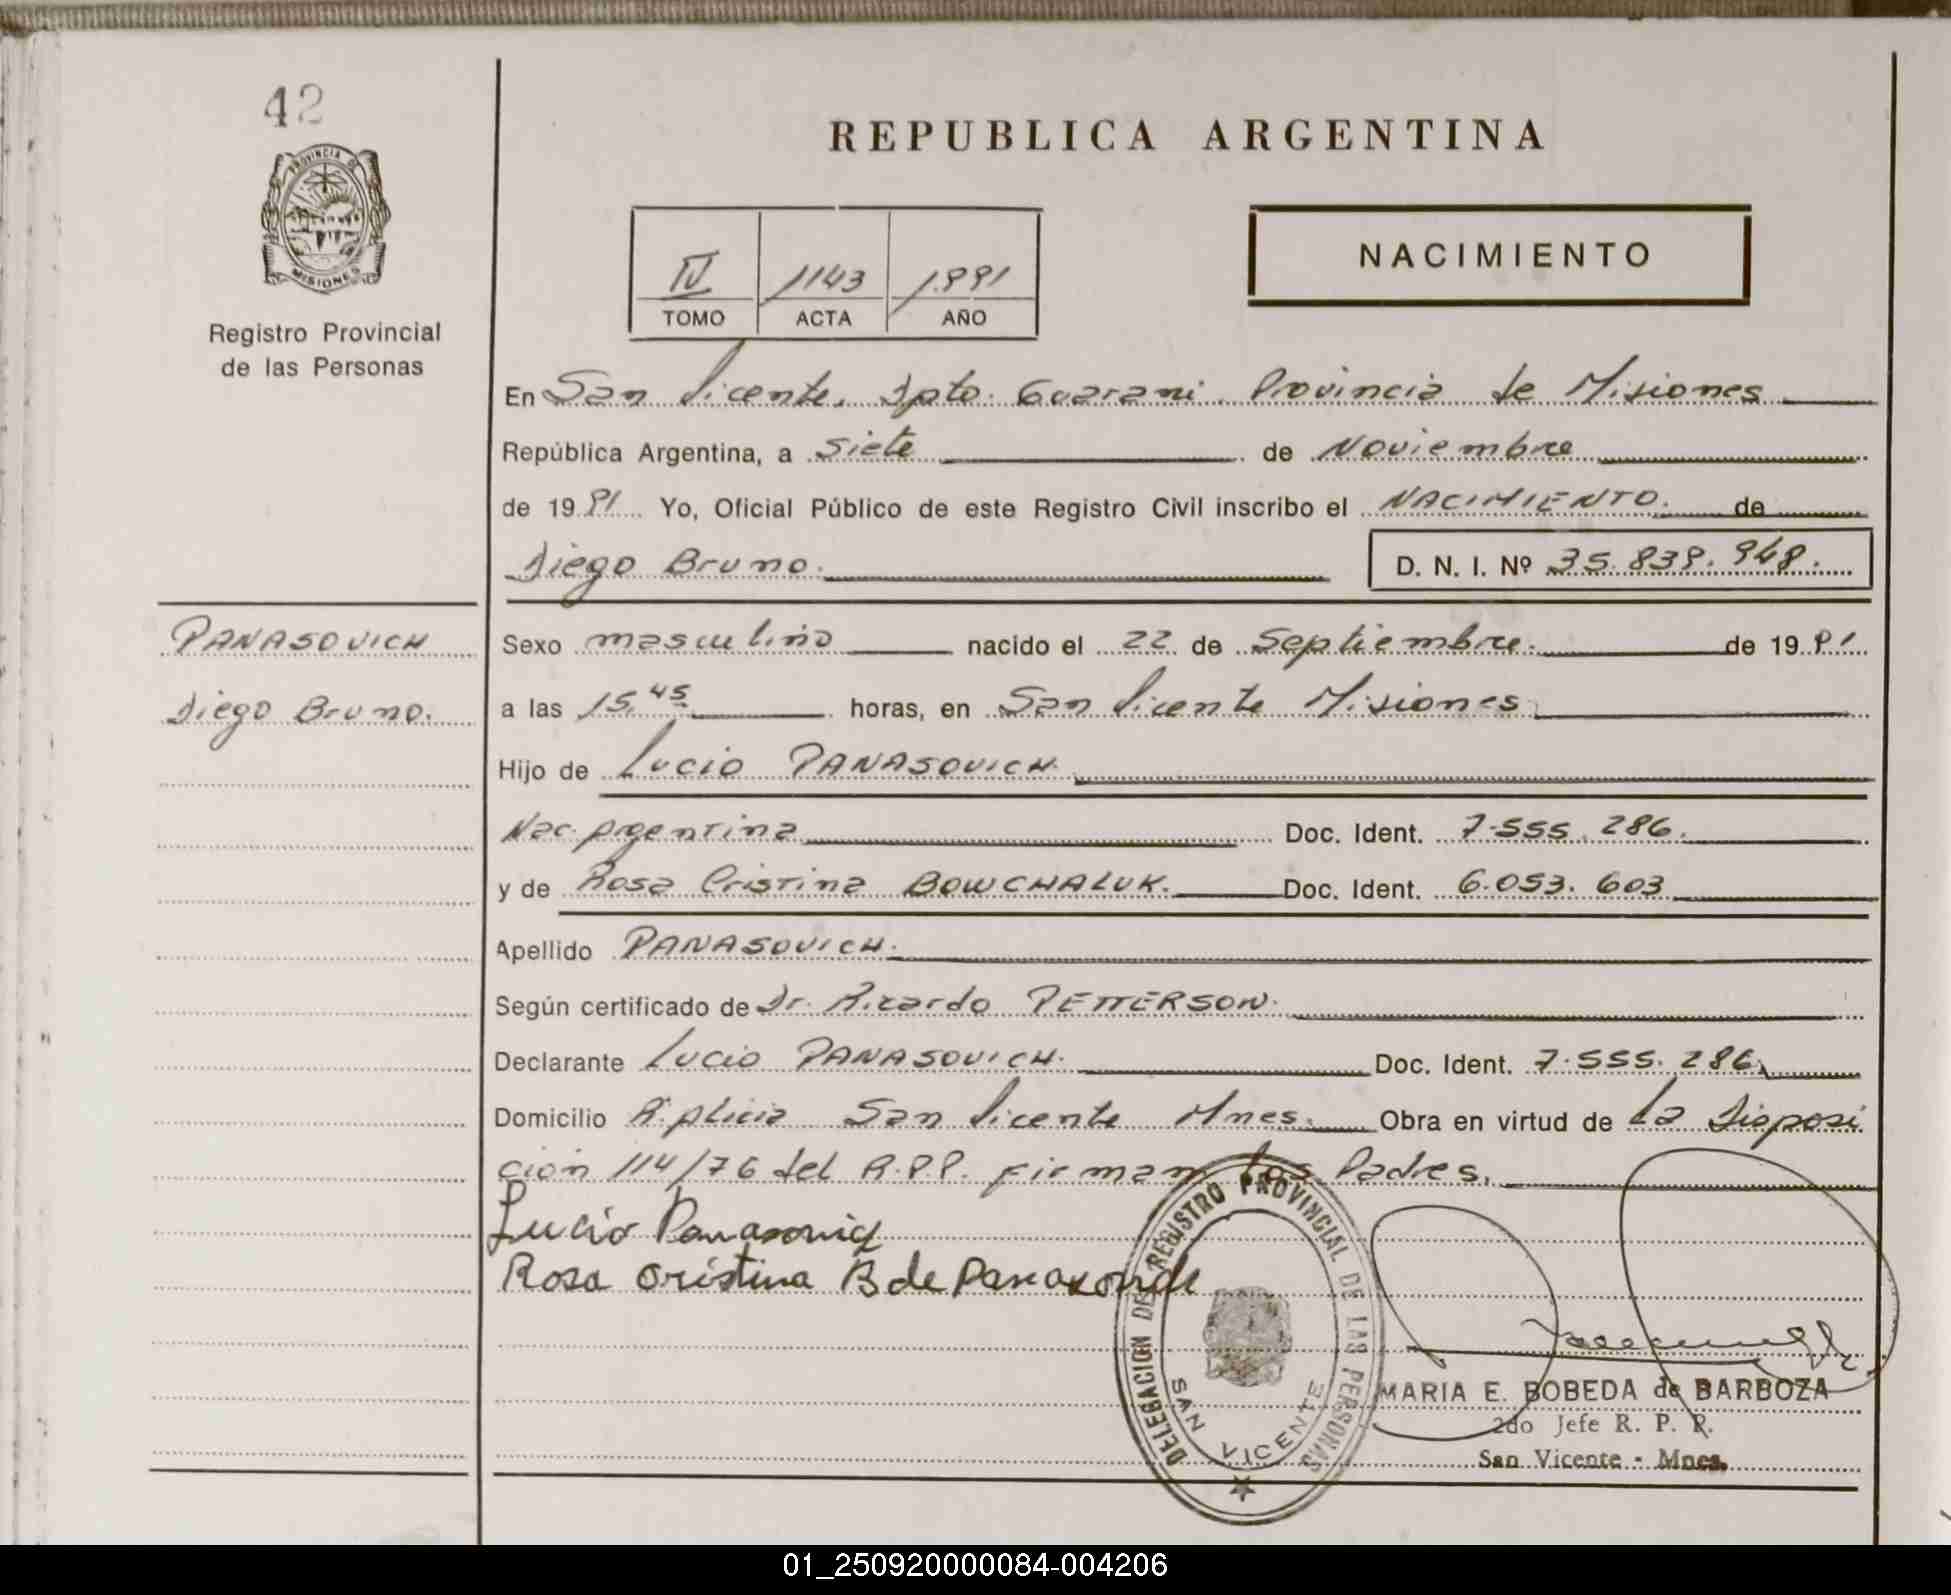 42
PROVINCIA DE
MISIONES
Registro Provincial
de las Personas
REPUBLICA ARGENTINA
NACIMIENTO
IV 1143 1.991
TOMO ACTA AÑO
En San Vicente, Dpto. Guarani. Provincia de Misiones
República Argentina, a Siete de Noviembre
de 1991 Yo, Oficial Público de este Registro Civil inscribo el NACIMIENTO. de
Diego Bruno. D. N. I. Nº 35.839.948.
PANASOVICH
Diego Bruno.
Sexo masculino nacido el 22 de Septiembre. de 1991
a las 15,45 horas, en San Vicente Misiones
Hijo de Lucio PANASOVICH.
Nac. Argentina Doc. Ident. 7.555.286.
y de Rosa Cristina BOWCHALUK. Doc. Ident. 6.053.603
Apellido PANASOVICH.
Según certificado de Dr. Ricardo PETTERSON.
Declarante Lucio PANASOVICH. Doc. Ident. 7.555.286,
Domicilio San Vicente Mnes. Obra en virtud de La Disposi
ción 114/76 del R.P.P. firman los Padres.
Lucio Panasovich
Rosa Cristina B de Panasovich
DELEGACION DE REGISTRO PROVINCIAL DE LAS PERSONAS
SAN VICENTE
MARIA E. BOBEDA de BARBOZA
2do Jefe R. P. P.
San Vicente - Mnes.
01_250920000084-004206